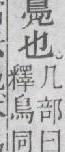 鳧也
几部曰
釋鳥同